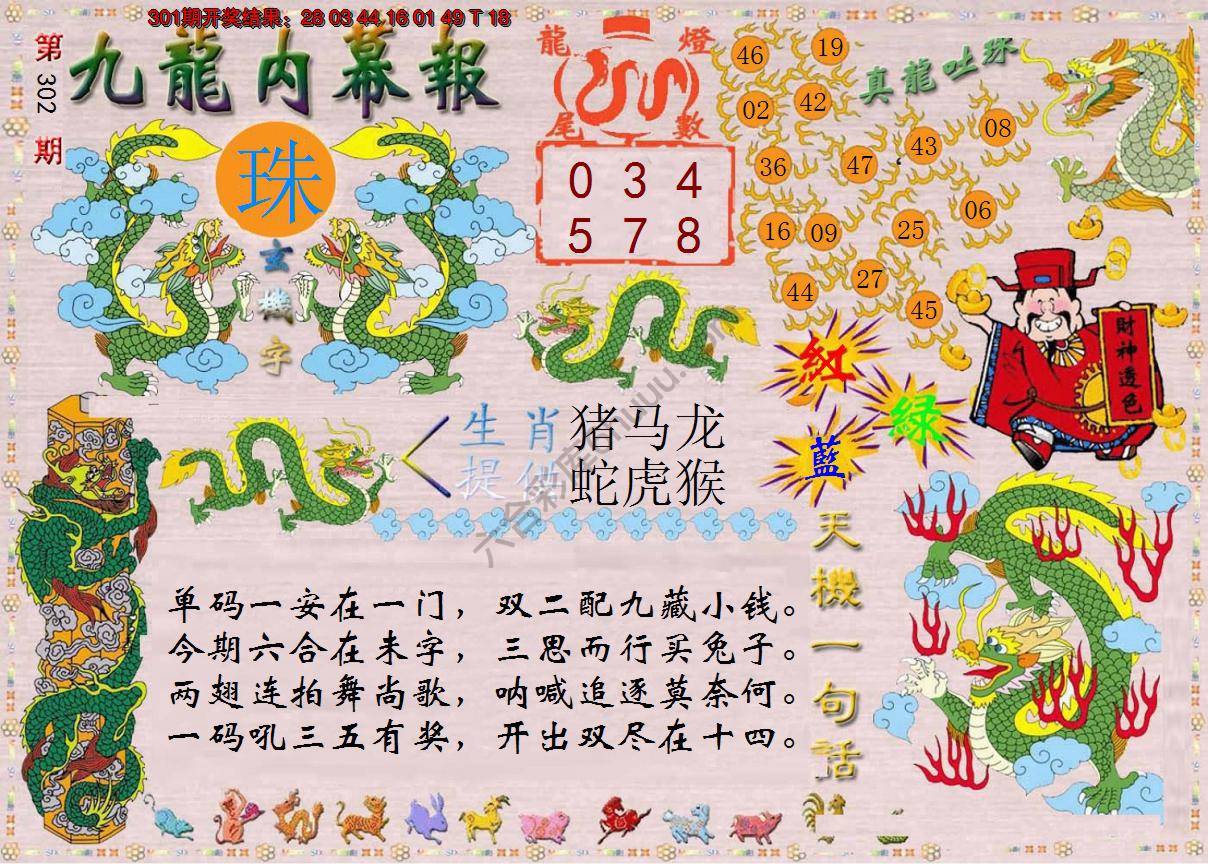 301期开奖结果：28 03 44 16 01 49 T 18
第302期
九龍内幕報
珠
玄機字
龍燈
尾數
0 3 4
5 7 8
真龍吐珠
46 19
02 42
36 47 43 08
16 09 25 06
44 27 45
財神透色
紅
綠
藍
生肖 猪马龙
提供 蛇虎猴
天機一句話
单码一安在一门，双二配九藏小钱。
今期六合在未字，三思而行买兔子。
两翅连拍舞尚歌，呐喊追逐莫奈何。
一码吼三五有奖，开出双尽在十四。